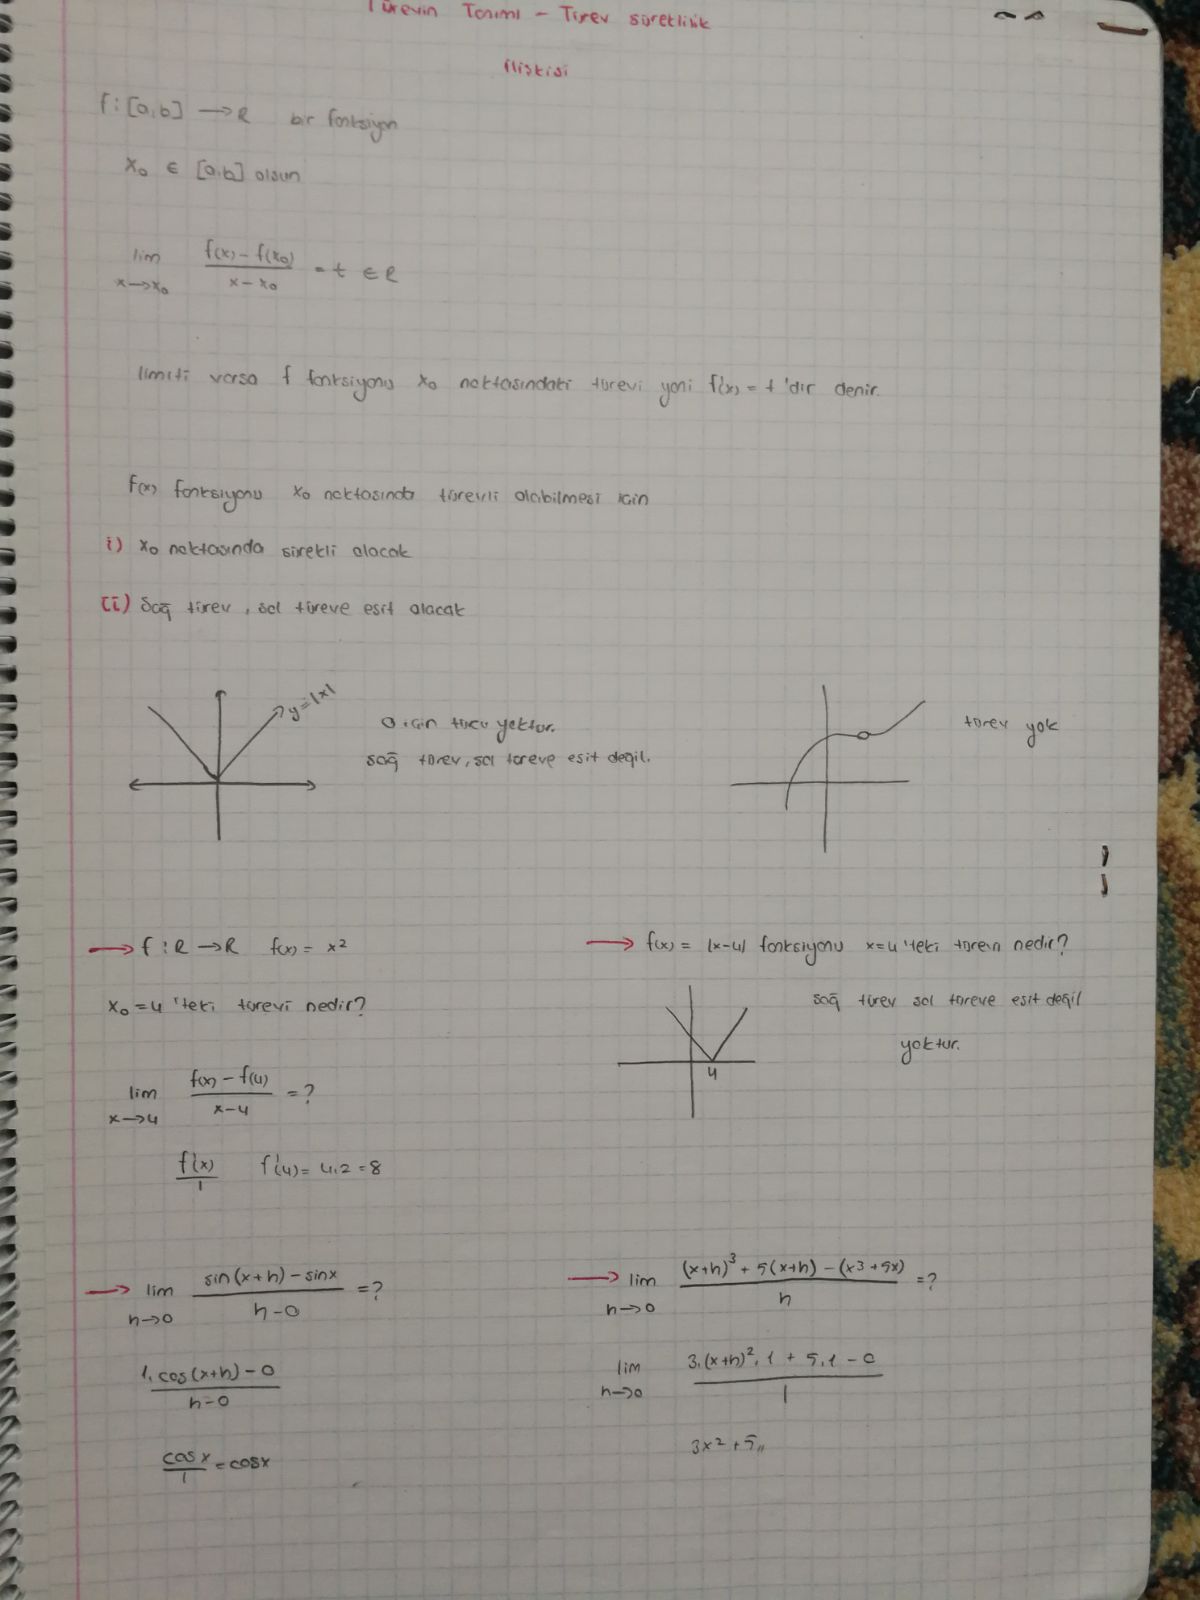 Türevin Tanımı – Türev süreklilik
ilişkisi
f : [a,b] → R bir fonksiyon
x₀ ∈ [a,b] olsun
lim x→x₀ (f(x) – f(x₀)) / (x – x₀) = t ∈ R
limiti varsa f fonksiyonu x₀ noktasındaki türevi yani f'(x) = t 'dir denir.
f(x) fonksiyonu x₀ noktasında türevli olabilmesi için
i) x₀ noktasında sürekli olacak
ii) Sağ türev, sol türeve eşit olacak
y=|x|
0 için türev yoktur.
sağ türev, sol türeve eşit değil.
türev yok
→ f : R → R f(x) = x²
x₀ = 4 'teki türevi nedir?
lim x→4 (f(x) – f(4)) / (x – 4) = ?
f'(x) / 1 f'(4) = 4.2 = 8
→ f(x) = |x-4| fonksiyonu x=4 'teki türevin nedir?
sağ türev sol türeve eşit değil
yoktur.
4
→ lim h→0 (sin(x+h) – sinx) / (h – 0) = ?
(1. cos(x+h) – 0) / (h – 0)
cosx / 1 = cosx
→ lim h→0 ((x+h)³ + 5(x+h) – (x3 + 5x)) / h = ?
lim h→0 (3.(x+h)². 1 + 5.1 – 0) / 1
3x² + 5,,